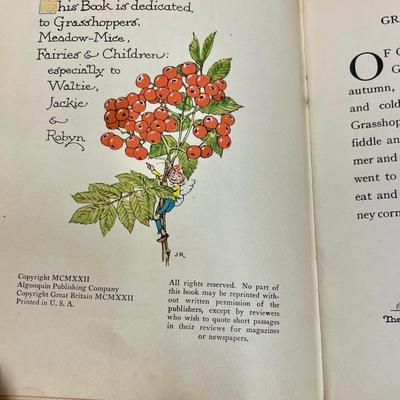 This Book is dedicated,
to Grasshoppers,
Meadow-Mice,
Fairies & Children:
especially to
Waltie,
Jackie
&
Robyn
JR
Copyright MCMXXII
Algonquin Publishing Company
Copyright Great Britain MCMXXII
Printed in U. S. A.
All rights reserved. No part of
this book may be reprinted with-
out written permission of the
publishers, except by reviewers
who wish to quote short passages
in their reviews for magazines
or newspapers.
GR
OF
autumn,
and cold
Grassho
fiddle an
mer and
went to
eat and
ney corn
The